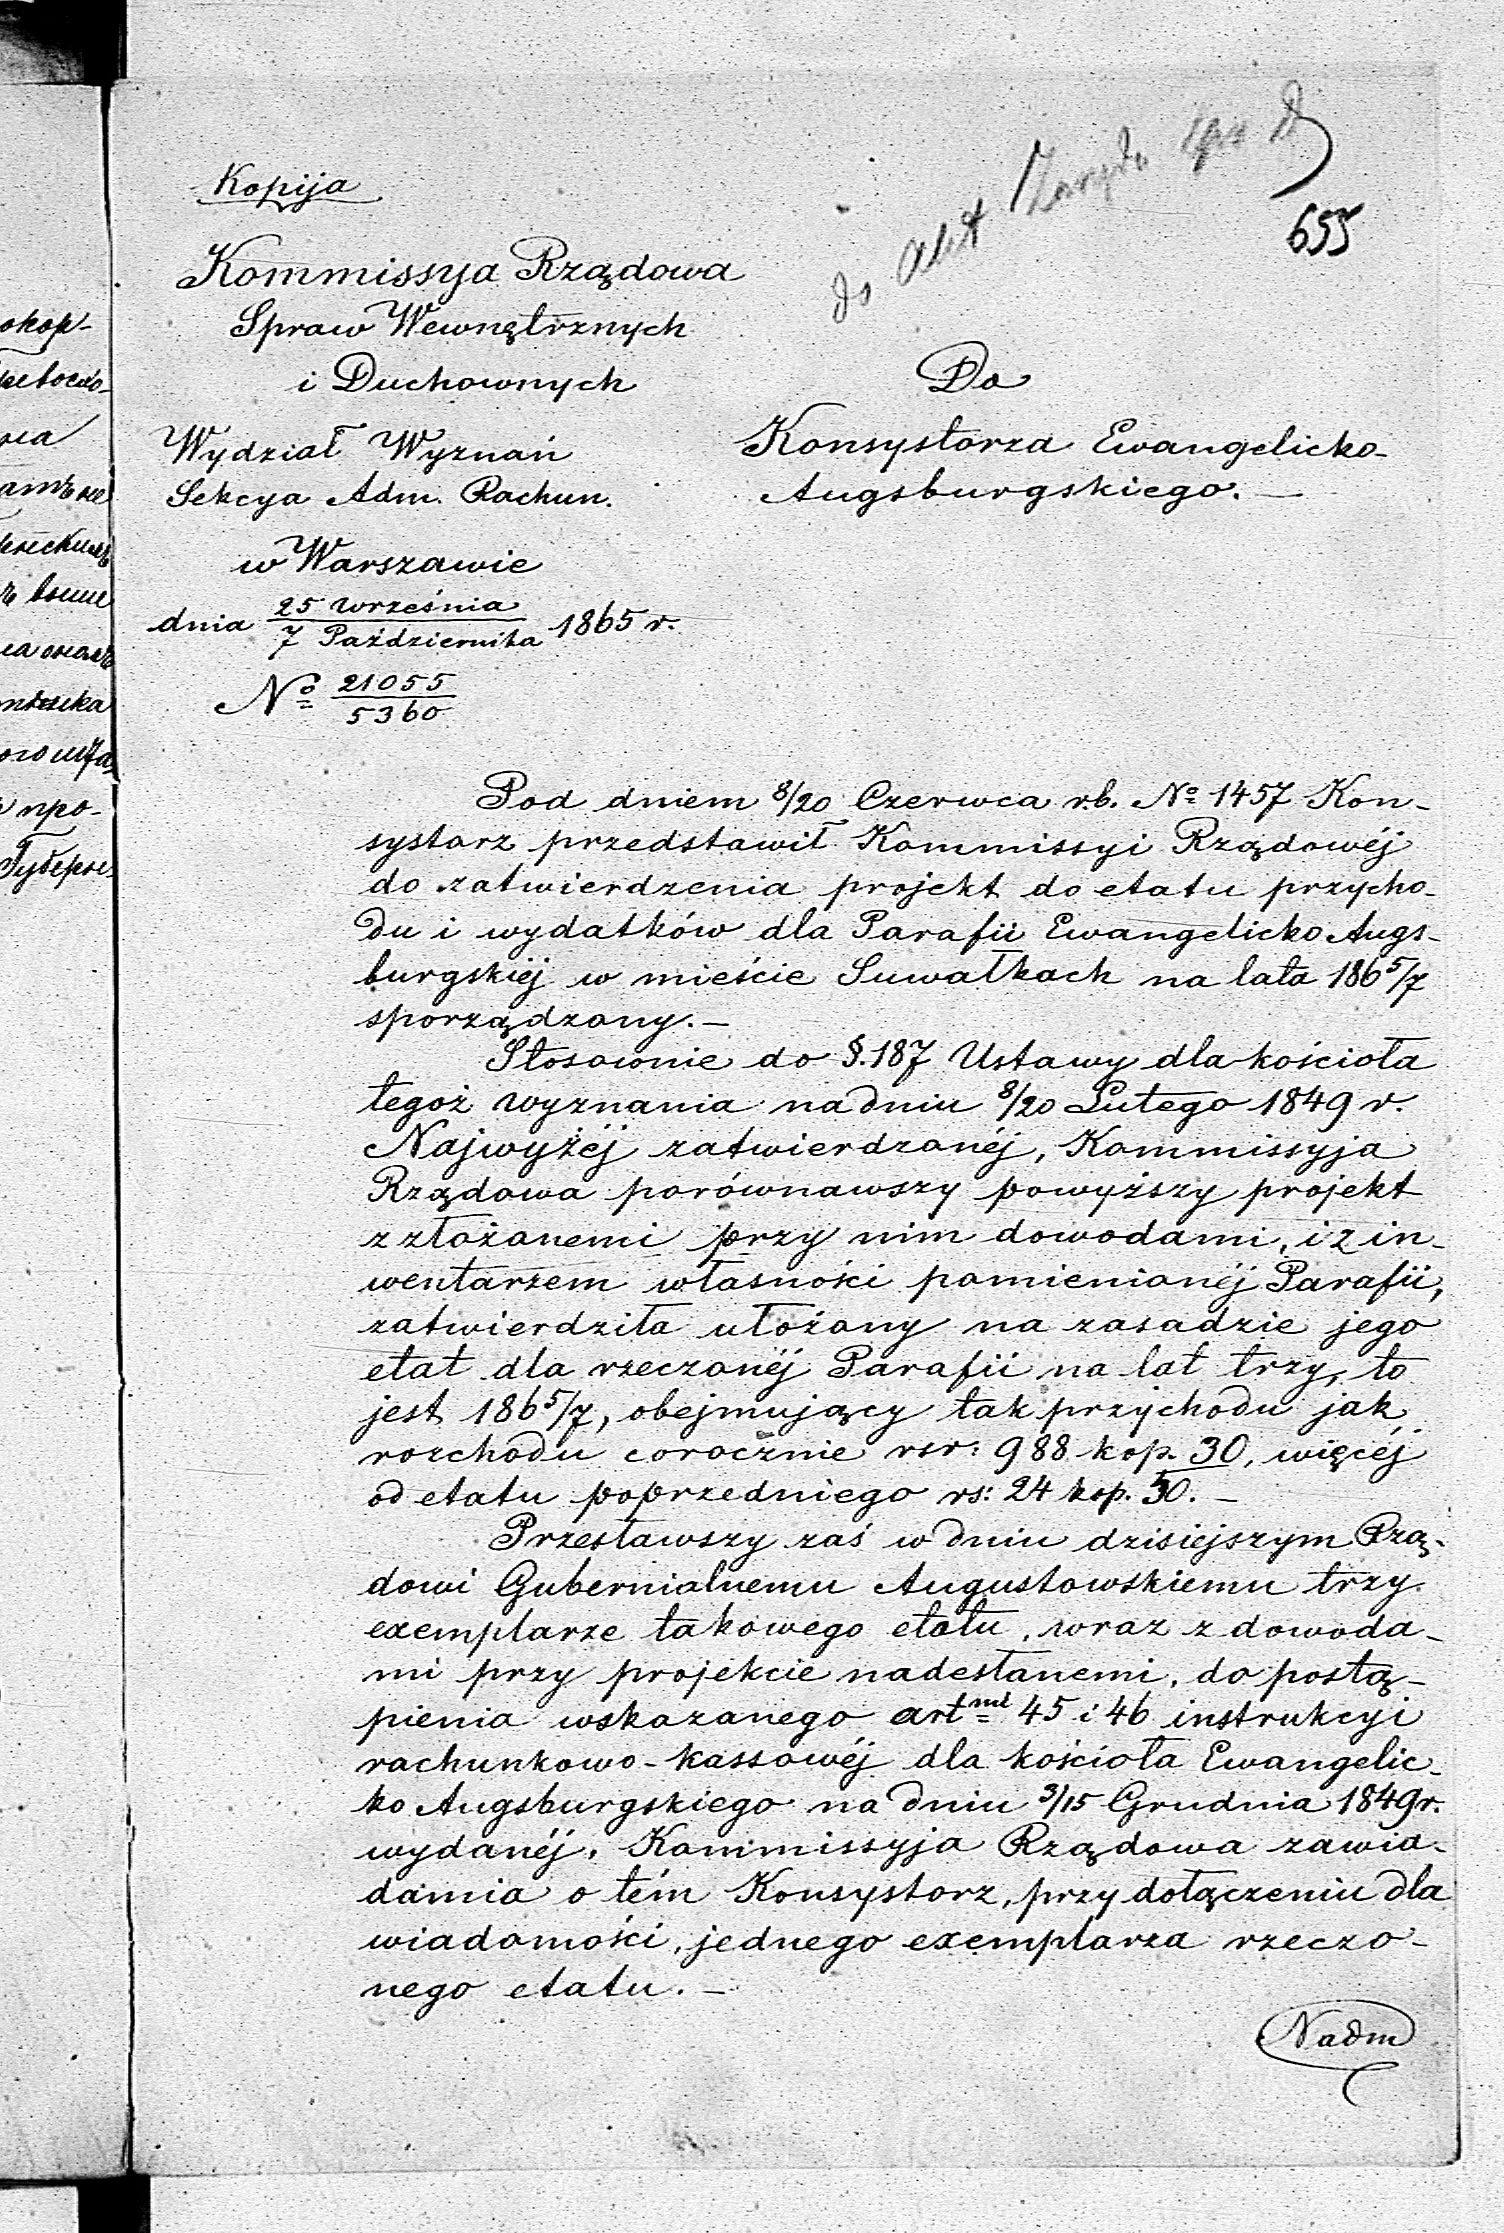 Kopija
655
Kommissya Rządowa
Spraw Wewnętrznych
i Duchownych
Wydział Wyznań
Sekcya Adm. Rachun.
w Warszawie
dnia 25 Września / 7 Października 1865 r.
№ 21055 / 5360
Do
Konsystorza Ewangelicko-
Augsburgskiego. —
Pod dniem 8/20 Czerwca r.b. № 1457 Kon-
systorz przedstawił Kommissyi Rządowéj
do zatwierdzenia projekt do etatu przycho-
du i wydatków dla Parafii Ewangelicko Augs-
burgskiéj w mieście Suwałkach na lata 186 5/7
sporządzony. —
Stosownie do §. 187 Ustawy dla kościoła
tegoż wyznania na dniu 8/20 Lutego 1849 r.
Najwyżéj zatwierdzonéj, Kommissyja
Rządowa porównawszy powyższy projekt
z złożonemi przy nim dowodami, i z in-
wentarzem własności pomienionéj Parafii,
zatwierdziła ułożony na zasadzie jego
etat dla rzeczonéj Parafii na lat trzy, to
jest 186 5/7, obejmujący tak przychodu jak
rozchodu corocznie rsr: 988 kop. 30, więcéj
od etatu poprzedniego rs: 24 kop. 30. —
Przesławszy zaś w dniu dzisiejszym Rzą-
dowi Gubernialnemu Augustowskiemu trzy
exemplarze takowego etatu, wraz z dowoda-
mi przy projekcie nadesłanemi, do postą-
pienia wskazanego art mi 45 i 46 instrukcyi
rachunkowo-kassowéj dla kościoła Ewangelic-
ko Augsburgskiego na dniu 3/15 Grudnia 1849 r.
wydanéj, Kommissyja Rządowa zawia-
damia o tém Konsystorz, przy dołączeniu dla
wiadomości, jednego exemplarza rzeczo-
nego etatu. —
Nadm